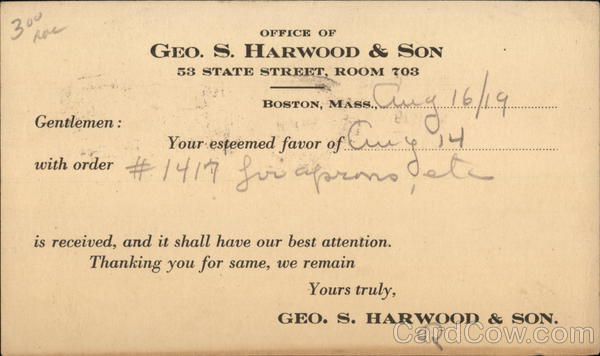 3.00
OFFICE OF
GEO. S. HARWOOD & SON
53 STATE STREET, ROOM 703
BOSTON, MASS., Aug 16/19
Gentlemen:
Your esteemed favor of Aug 14
with order #1417 for aprons, etc
is received, and it shall have our best attention.
Thanking you for same, we remain
Yours truly,
GEO. S. HARWOOD & SON.
CardCow.com